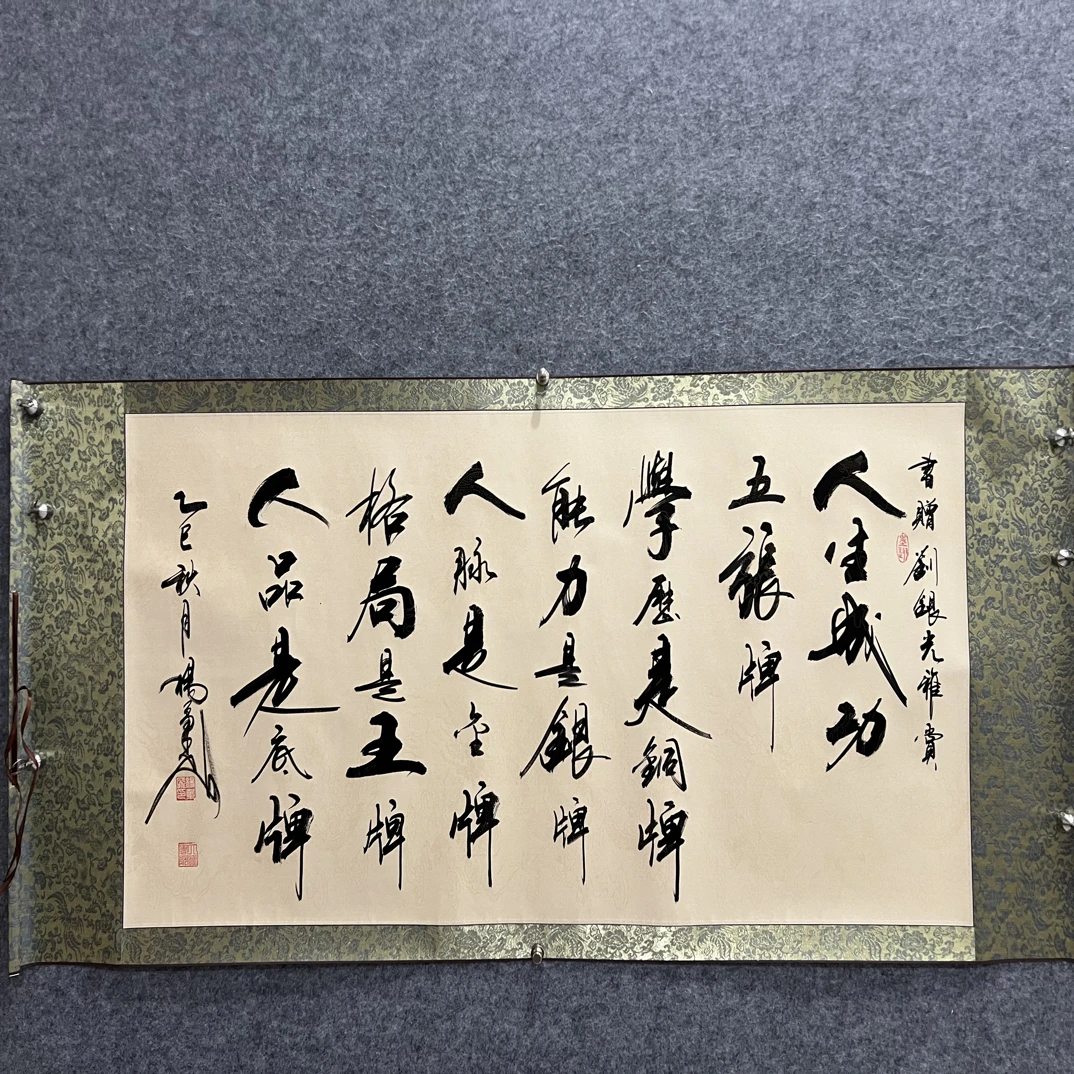 書贈劉銀光雅賞
人生成功
五張牌
學歷是銅牌
能力是銀牌
人脉是金牌
格局是王牌
人品是底牌
乙巳秋月楊